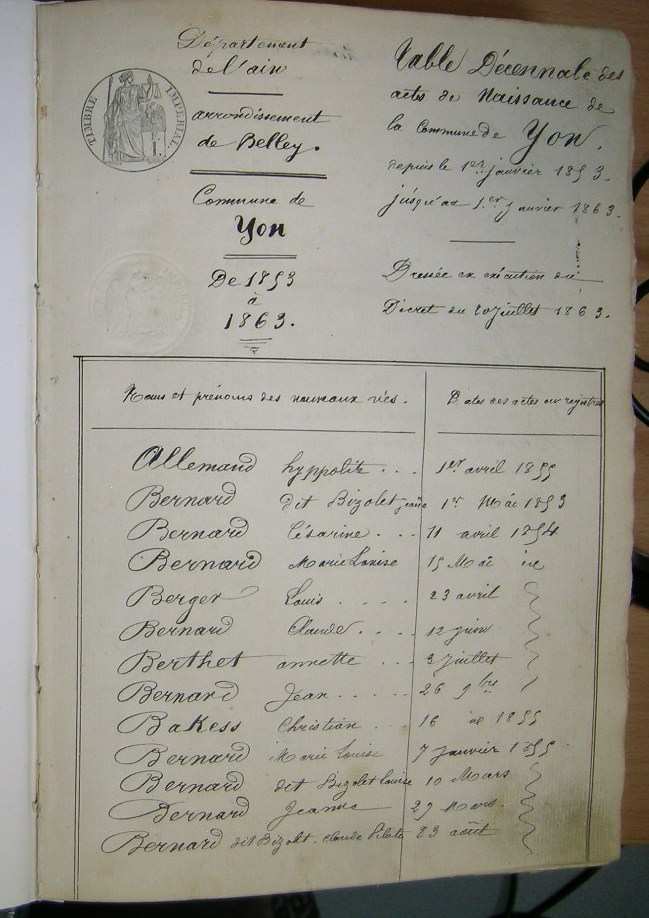 TIMBRE IMPERIAL
Département
de l'ain
arrondissement
de Belley.
Commune de
Yon
De 1853
à
1863.
Table Décennale des
actes de Naissance de
la Commune de Yon.
depuis le 1er janvier 1853.
jusqu'au 1er janvier 1863.
Dressée en exécution du
Décret du 20 juillet 1863.
Noms et prénoms des nouveaux nés.
Dates des actes aux registres
Allemand hyppolite . . . 1er avril 1855
Bernard dit Bizolet 1er Mai 1853
Bernard Césarine . . . 11 avril 1854
Bernard Marie Louise 15 Mai
Berger Louis . . . . 23 avril
Bernard Claude . . . . 12 juin
Berthet annette . . . 2 juillet
Bernard Jean . . . . . 26 9bre
Bakess Christian . . . 16 1855
Bernard Marie Louise 7 janvier 1855
Bernard dit Bizolet Louise 10 Mars
Bernard Jeanne 29 Mars.
Bernard dit Bizolet. Claude 23 août